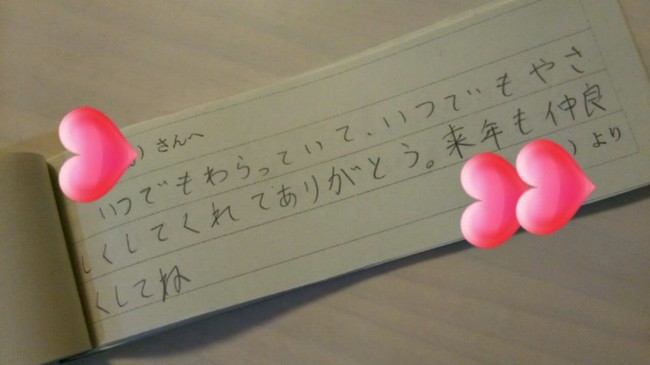 ) さんへ
いつでもわらっていて、いつでもやさ
しくしてくれてありがとう。来年も仲良
くしてね
) より